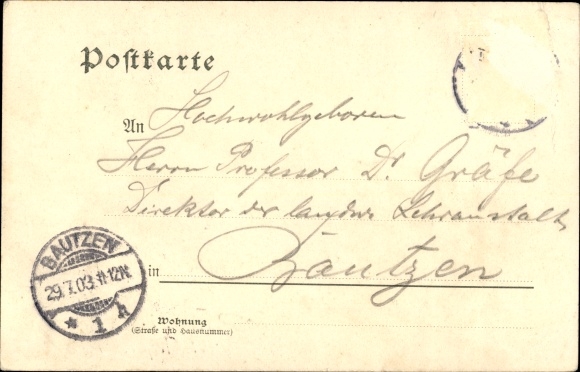 Postkarte
An Hochwohlgeboren
Herrn Professor Dr. Gräfe
Direktor der landw. Lehranstalt
in Bautzen
Wohnung
(Straße und Hausnummer)
BAUTZEN
29.7.03. 11-12N.
* 1 h